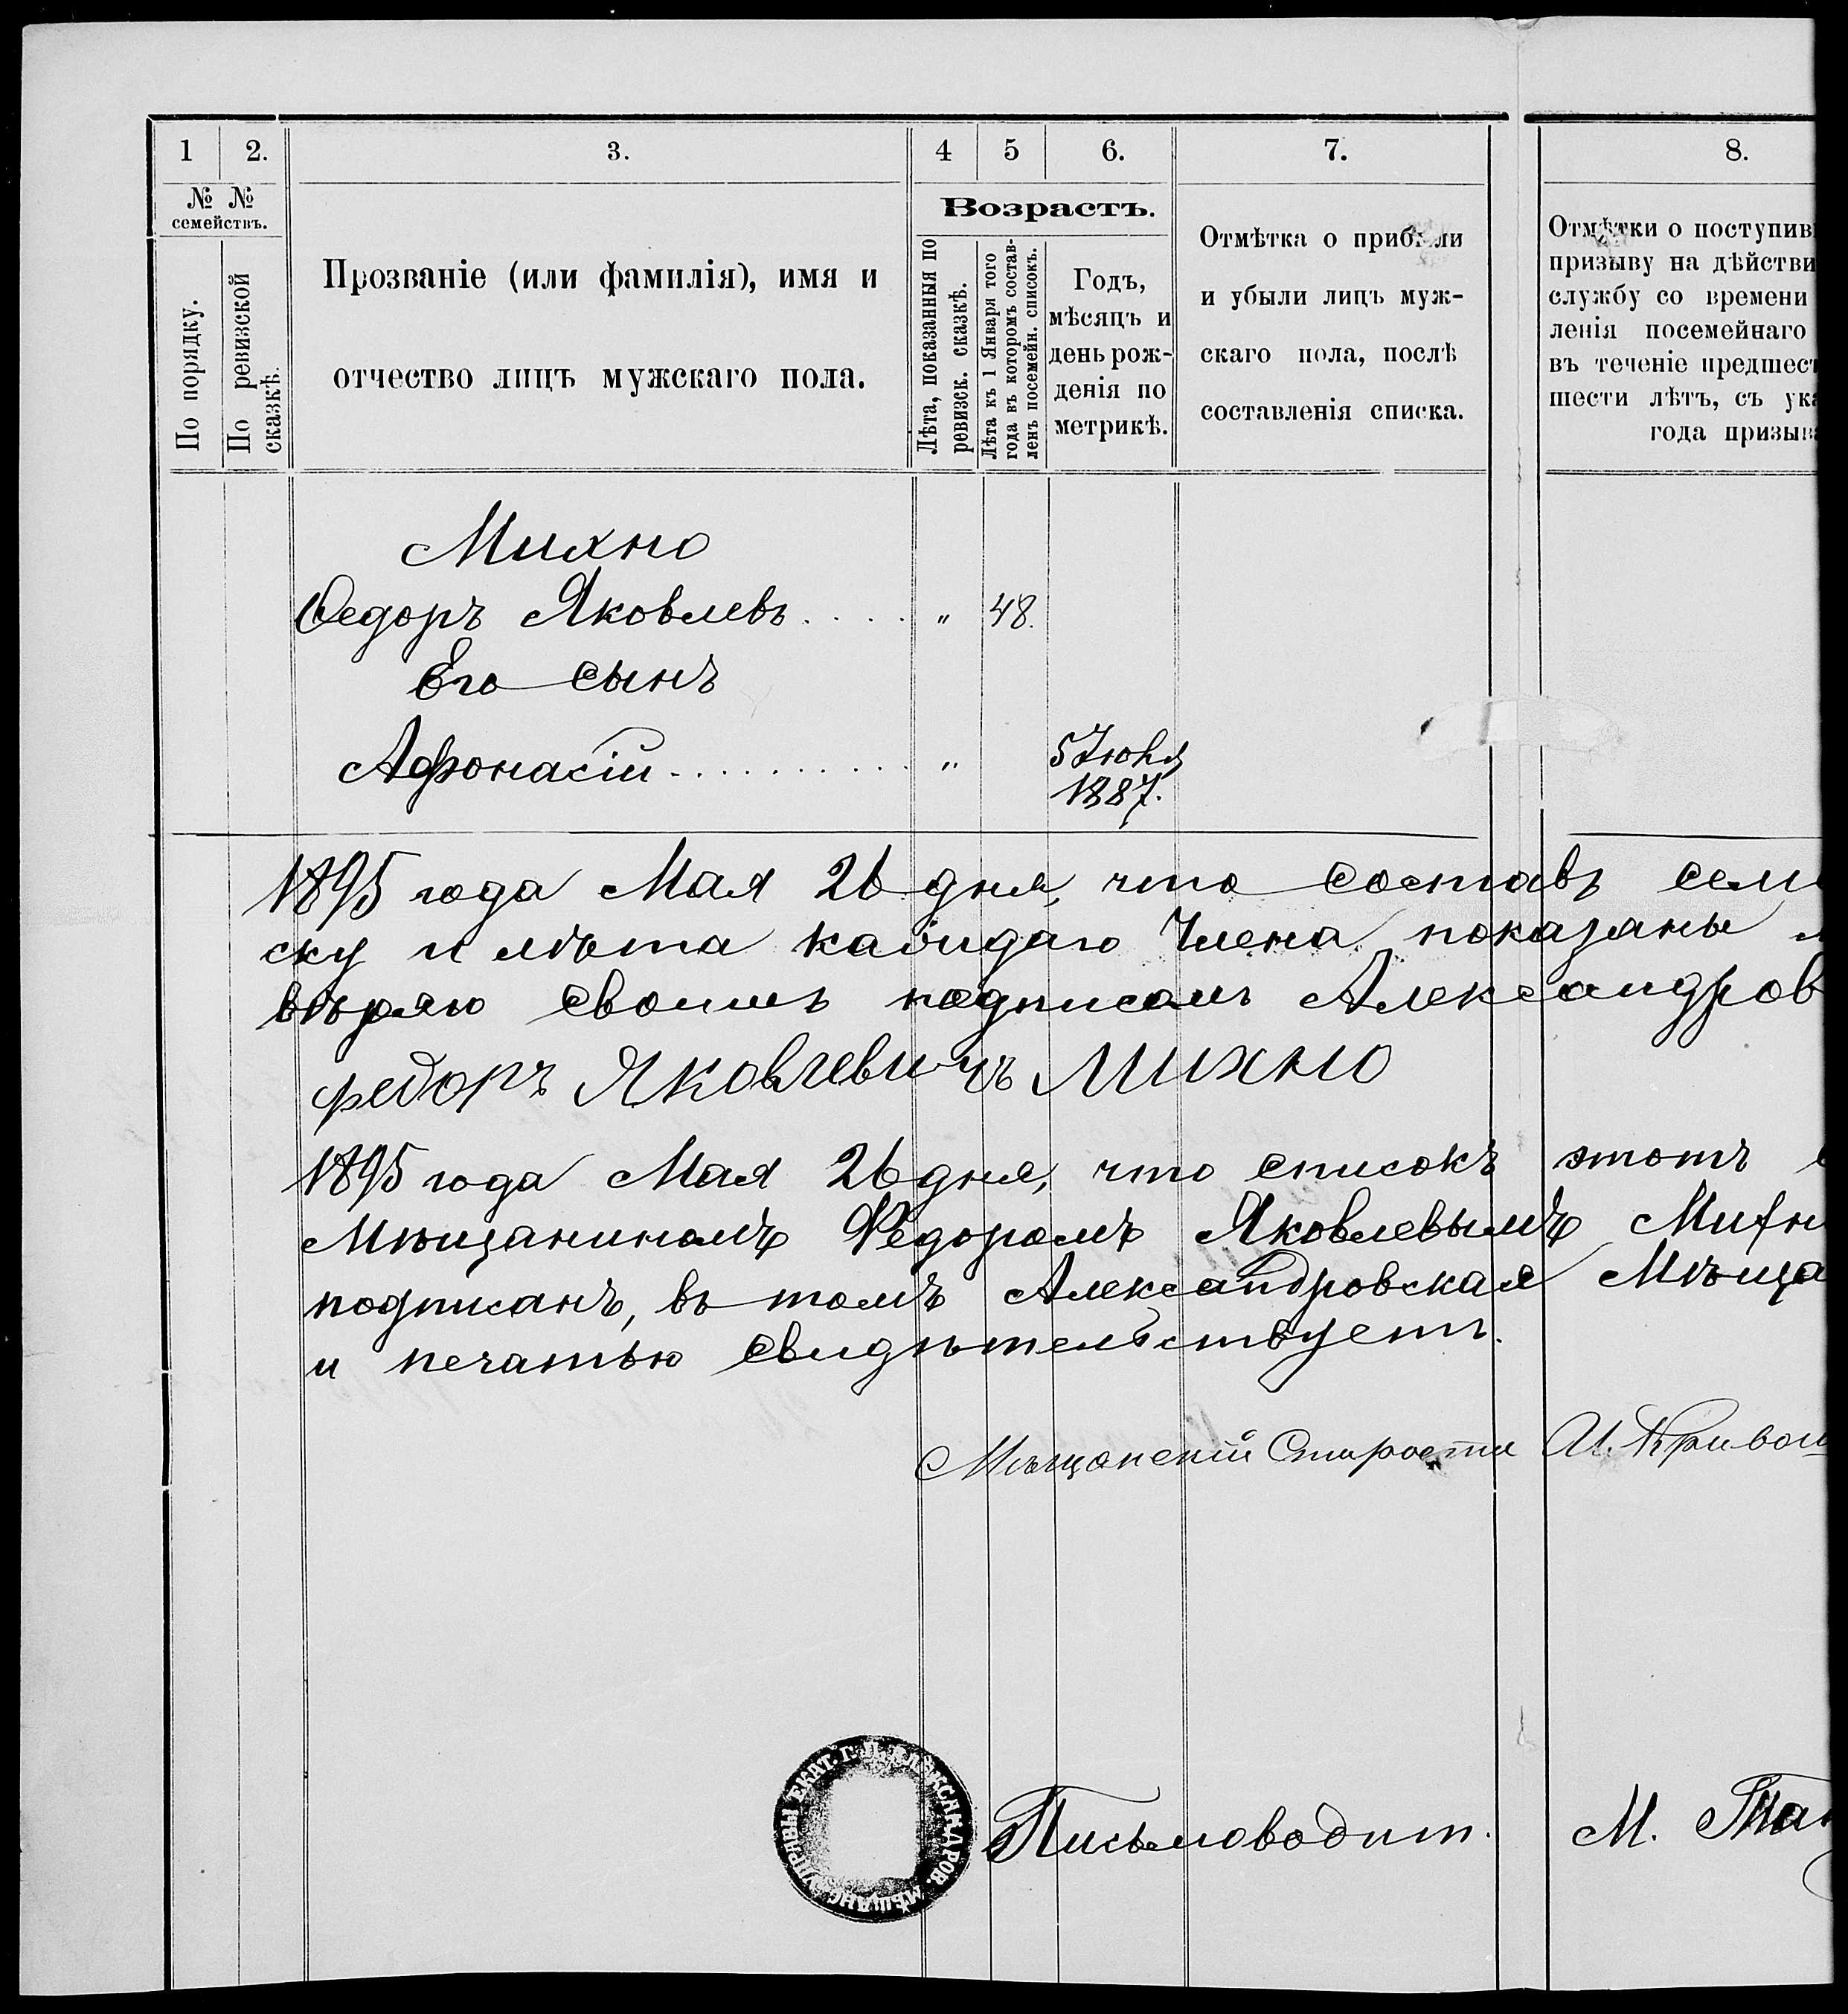 1 2. 3. 4 5 6. 7. 8.
№ №
семействъ.
По порядку.
По ревизской
сказкѣ.
Прозваніе (или фамилія), имя и
отчество лицъ мужскаго пола.
Возрастъ.
Лѣта, показанныя по
ревизск. сказкѣ.
Лѣта къ 1 Января того
года въ которомъ состав-
ленъ посемейн. списокъ.
Годъ,
мѣсяцъ и
день рож-
денія по
метрикѣ.
Отмѣтка о прибыли
и убыли лицъ муж-
скаго пола, послѣ
составленія списка.
Отмѣтки о поступив
призыву на дѣйстви
службу со времени
ленія посемейнаго
въ теченіе предшест
шести лѣтъ, съ ука
года призыва
Михно
Ѳедоръ Яковлевъ . . . . . " 48.
Его сынъ
Афонасій . . . . . . . . . . . " 5 Іюня
1887.
1895 года Мая 26 дня, что составъ сем
ску и лѣта каждаго Члена показаны
вѣряю своимъ подписомъ Александров
федоръ Яковлевичъ Михно
1895 года Мая 26 дня, что списокъ этотъ
Мѣщаниномъ Федоромъ Яковлевымъ Михн
подписанъ, въ томъ Александровская Мѣща
и печатью свидѣтельствуетъ.
Мѣщанскій Староста И. Кривош
ЕКАТ. Г. Д. АЛЕКСАНДРОВ. МѢЩАНС. УПРАВЫ
Письмоводит. М.